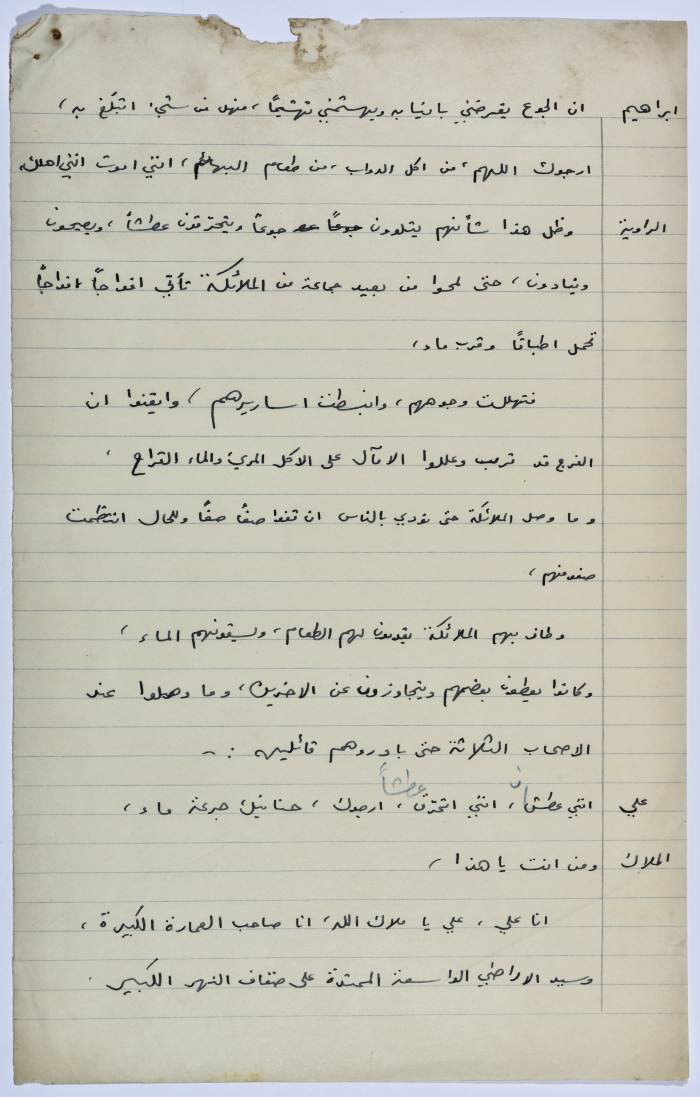 ابراهيم ان الجوع يقرضني بانيابه ويهشمني تهشيمًا، فهل من شيء اتبلّغ به،
ارجوك اللهم، من اكل الدواب، من طعام البهائم، انني اموت انني اهلك.
الراوية وظل هذا شأنهم يتلوون جوعًا ويتحرّقون عطشاً، ويصيحون
وينادون، حتى لمحوا من بعيد جماعة من الملائكة تأتي افواجاً افواجاً
تحمل اطباقًا وقرب ماء،
فتهللت وجوههم، وانبسطت اساريرهم، وايقنوا ان
الفرج قد قرب وعللوا الآمال على الاكل المريء والماء القراح،
وما وصل الملائكة حتى نودي بالناس ان قفوا صفًا صفًا وللحال انتظمت
صفوفهم،
وطاف بهم الملائكة يقدمون لهم الطعام، ويسقونهم الماء،
وكانوا يعطون بعضهم ويتجاوزون عن الآخرين، وما وصلوا عند
الاصحاب الثلاثة حتى بادروهم قائلين :-
علي انني عطشان، انني اتحرّق عطشاً، ارجوك، حنانيك جرعة ماء،
الملاك ومن انت يا هذا،
انا علي، علي يا ملاك الله، انا صاحب العمارة الكبيرة،
وسيد الاراضي الواسعة الممتدة على ضفاف النهر الكبير.